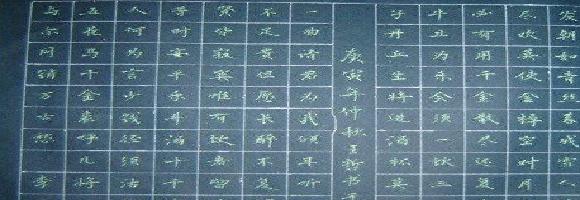 发朝如青丝暮成雪人
尽欢莫使金樽空对月
必有用千金散尽还复
牛且为乐会须一饮三
子丹丘生将进酒杯莫
庚寅年仲秋王哲书
一曲请君为我倾耳听
不足贵但愿长醉不复
贤皆寂寞惟有饮者留
昔时宴平乐斗酒十千
人何为言少钱径须沽
五花马千金裘呼儿将
与尔同销万古愁
李